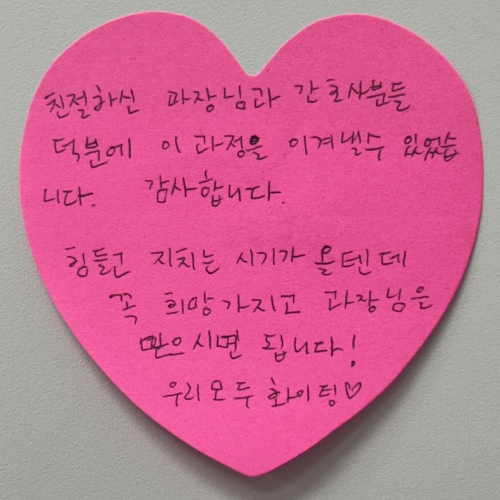 친절하신 과장님과 간호사분들
덕분에 이 과정을 이겨낼수 있었습
니다. 감사합니다.
힘들고 지치는 시기가 올텐데
꼭 희망가지고 과장님을
믿으시면 됩니다!
우리모두 화이팅♡